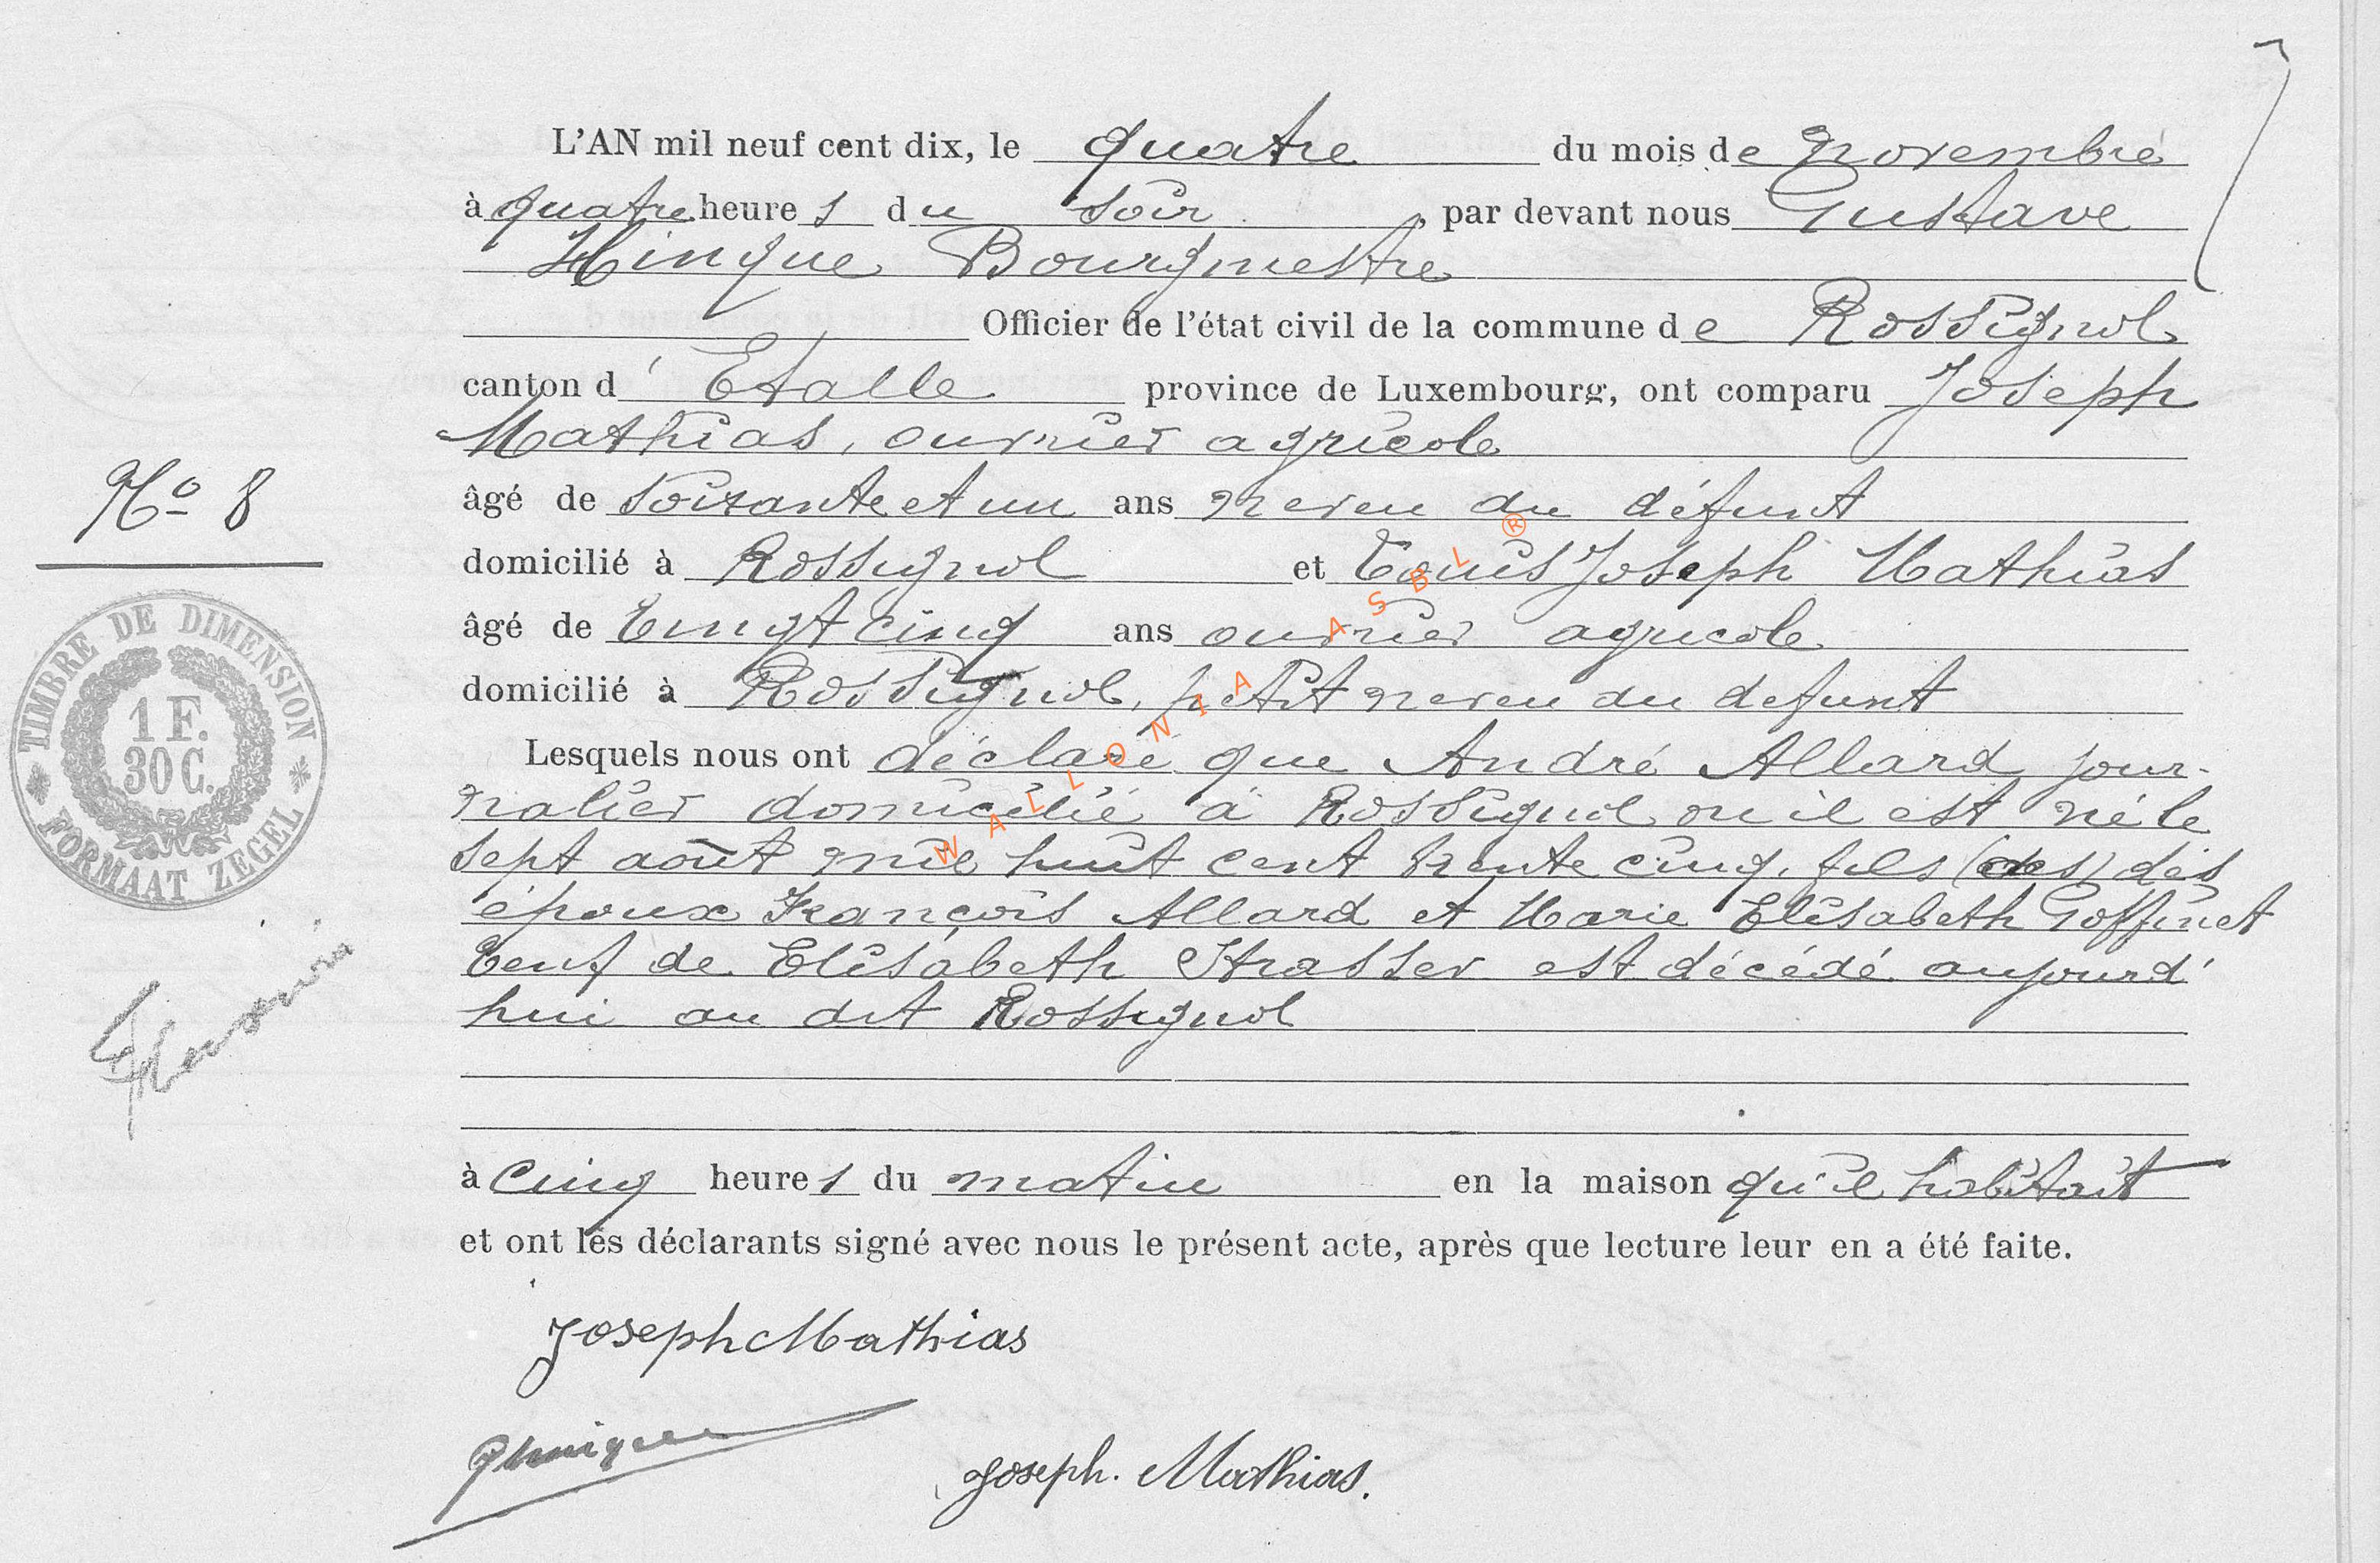 L'AN mil neuf cent dix, le quatre du mois de novembre
à quatre heures du soir, par devant nous Gustave
Hinque Bourgmestre
Officier de l'état civil de la commune de Rossignol
canton d'Etalle province de Luxembourg, ont comparu Joseph
Mathias, ouvrier agricole
âgé de soixante et un ans neveu du défunt
domicilié à Rossignol et Louis Joseph Mathias
âgé de Vingt cinq ans ouvrier agricole
domicilié à Rossignol, petit neveu du defunt
Lesquels nous ont déclaré que André Allard jour-
nalier domicilié à Rossignol ou il est né le
sept août mil huit cent trente cinq, fils (des) des
époux François Allard et Marie Elisabeth Goffinet
Veuf de Elisabeth Strasser est décédé aujourd'
hui au dit Rossignol
à cinq heures du matin en la maison qu'il habitait
et ont les déclarants signé avec nous le présent acte, après que lecture leur en a été faite.
Joseph Mathias
Joseph. Mathias.
No 8
TIMBRE DE DIMENSION
1 F.
30 C.
FORMAAT ZEGEL
WALLONIA ASBL ®